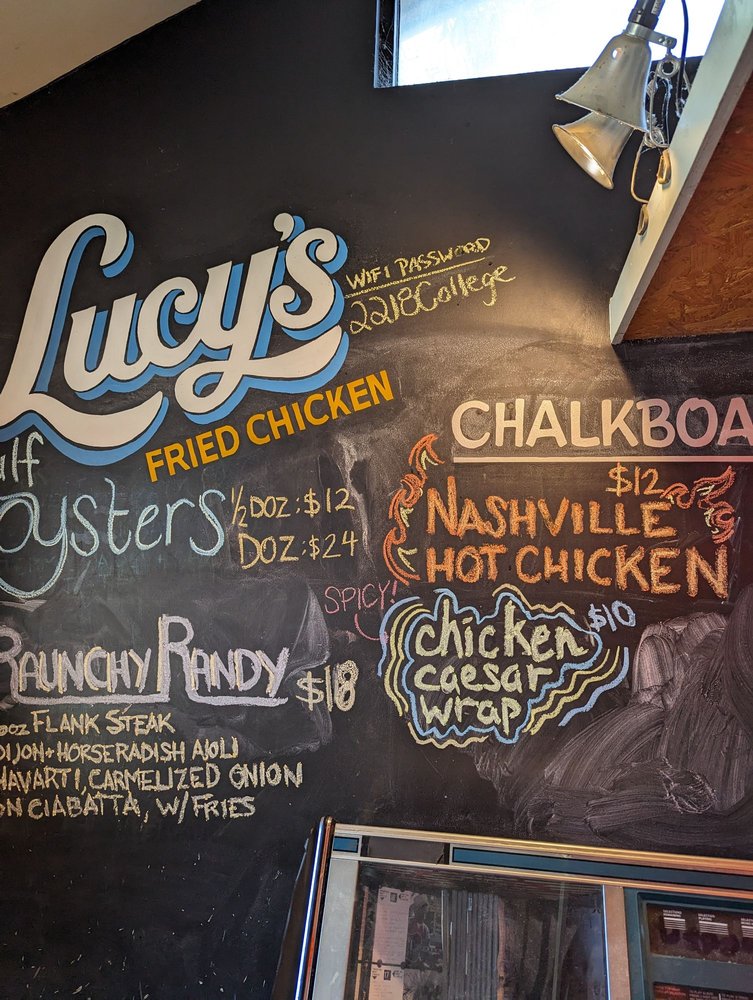 Lucy's
FRIED CHICKEN
WIFI PASSWORD
2218College
Oysters
1/2 DOZ: $12
DOZ: $24
RAUNCHY RANDY $18
FLANK STEAK
DIJON + HORSERADISH AIOLI
HAVARTI, CARMELIZED ONION
ON CIABATTA, W/ FRIES
CHALKBOA
$12
NASHVILLE
HOT CHICKEN
SPICY!
chicken
caesar
wrap
$10